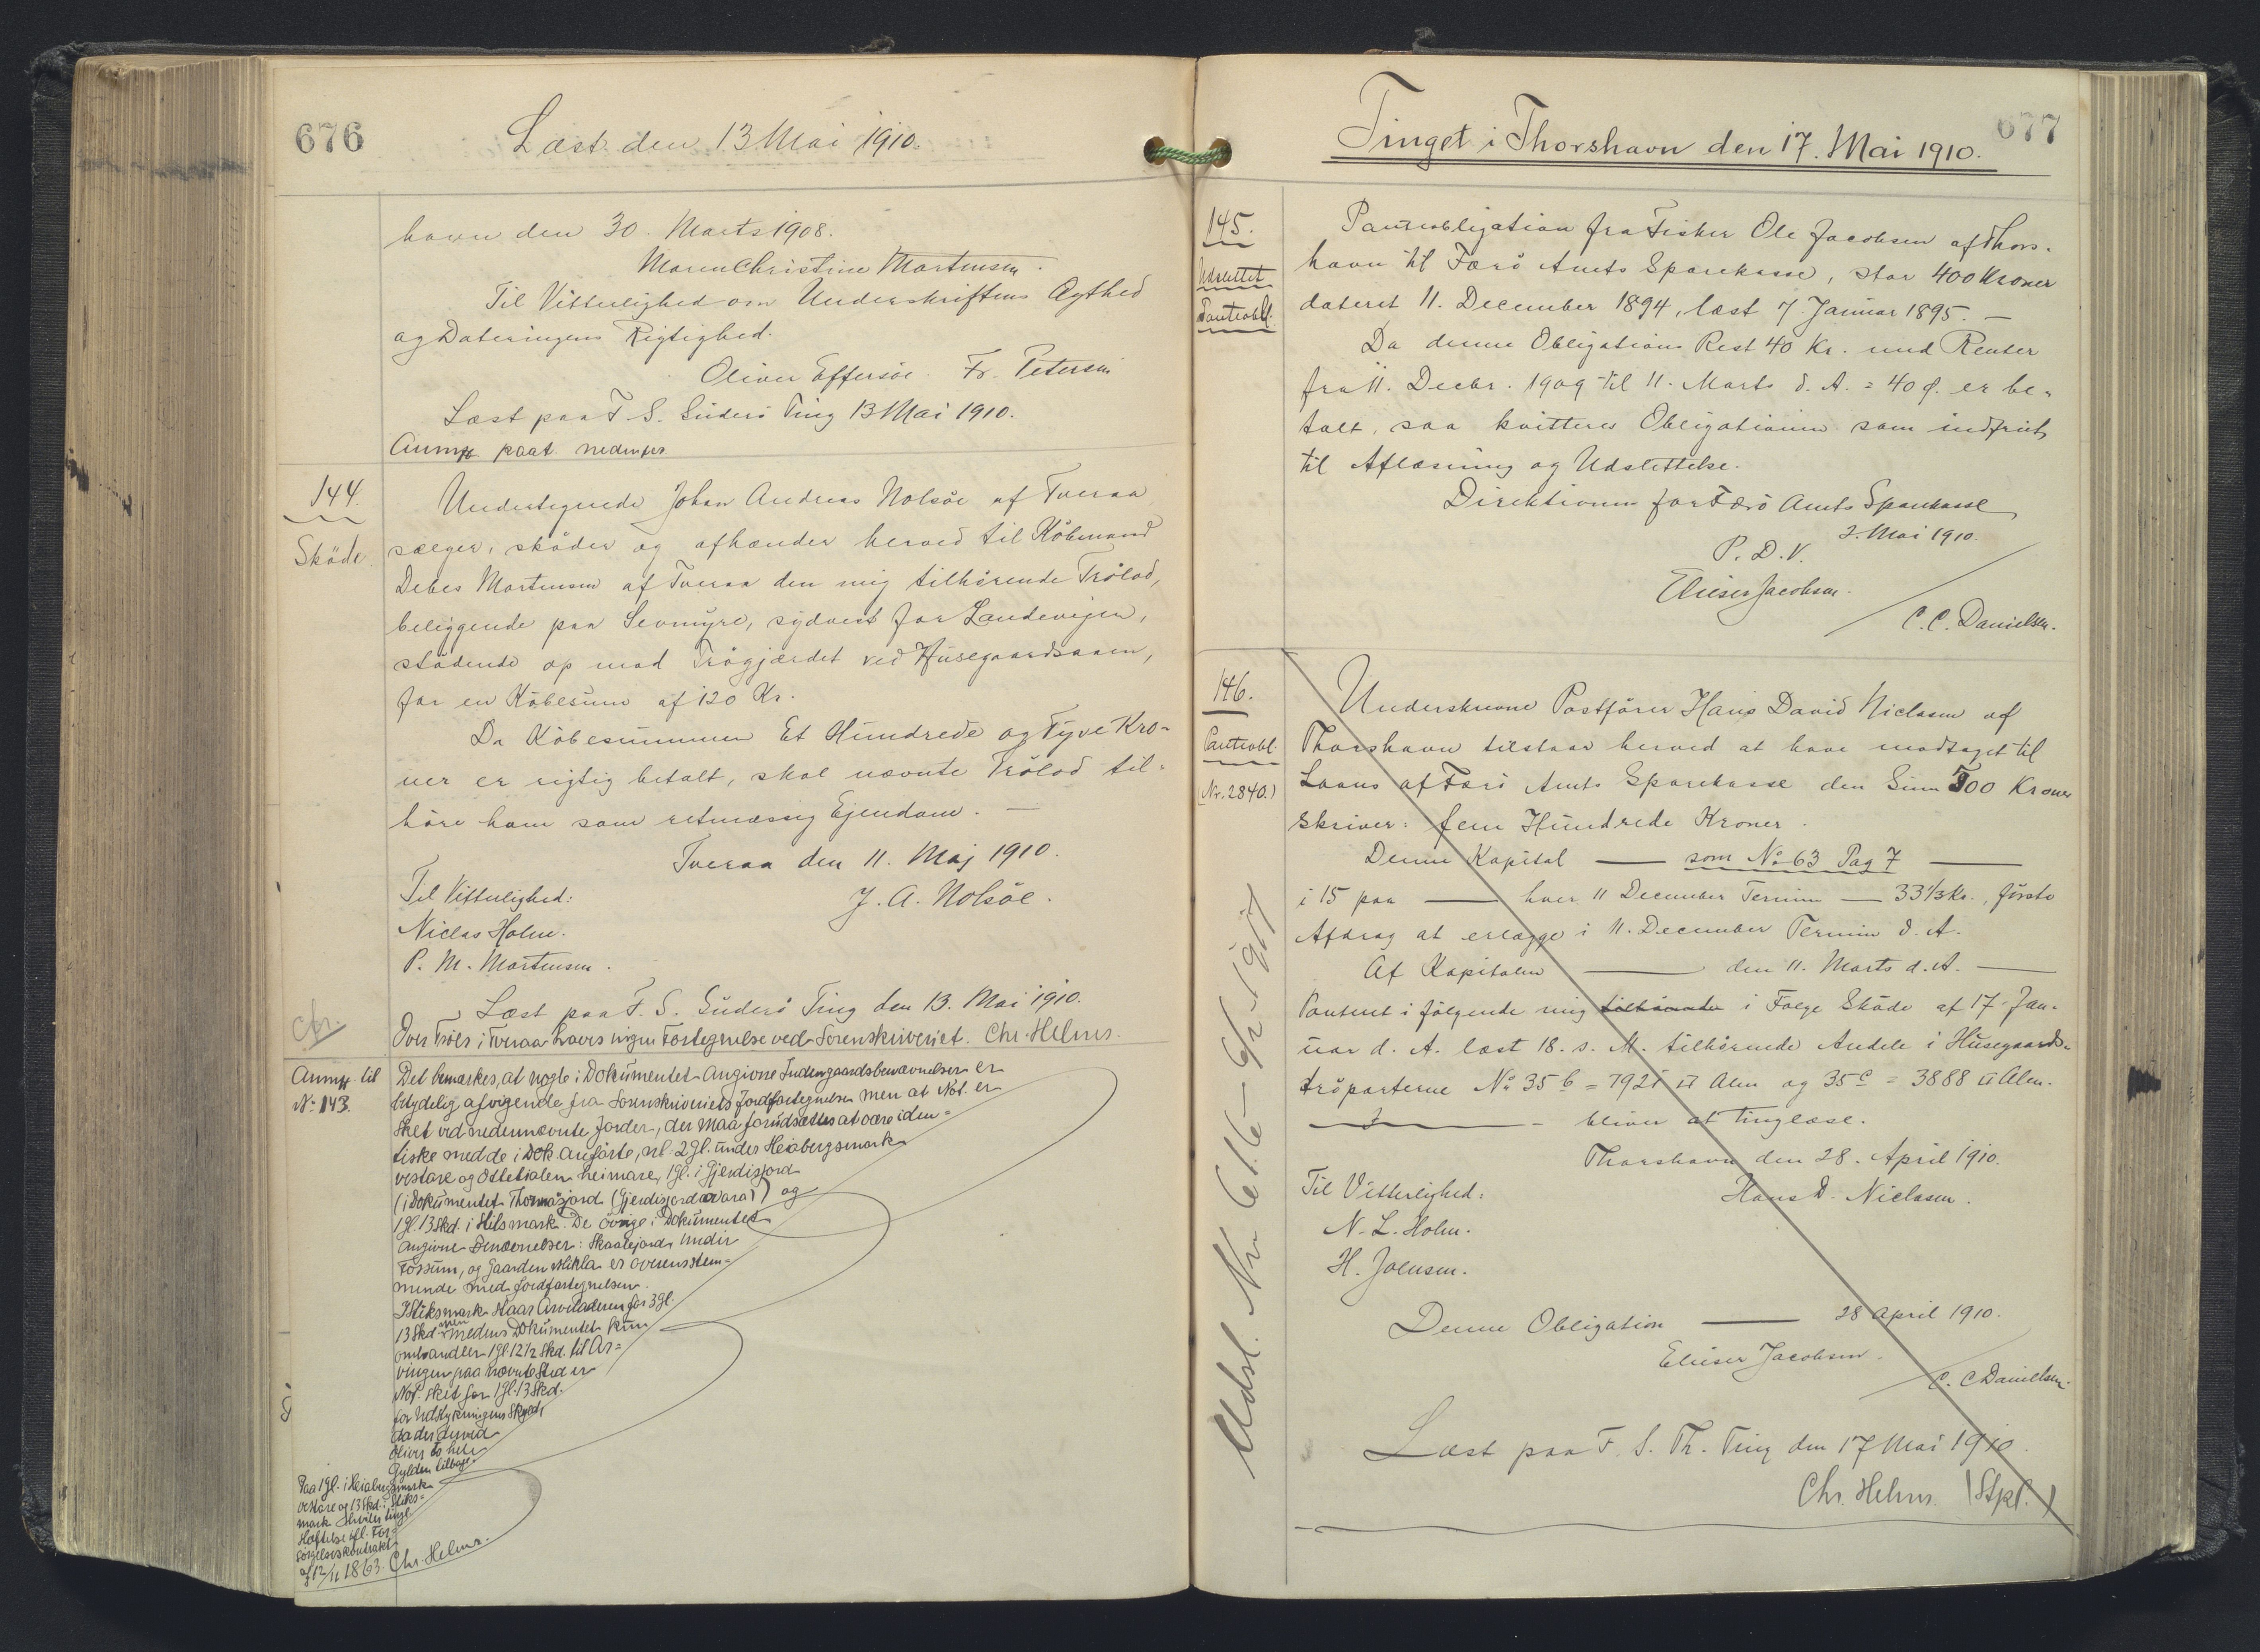 676
Læst den 13 Mai 1910.
havn den 30. Marts 1908.
Maren Christine Mortensen.
Til Vitterlighed om Underskriftens Ægthed
og Dateringens Rigtighed.
Oliver Effersøe Fr. Petersen
Læst paa F. S. Suderö Ting 13 Mai 1910.
Anmk. paat. nedenfor
144.
Sköde
Undertegnede Johan Andreas Nolsöe af Tveraa
sælger, sköder og afhænder herved til Köbmand
Debes Mortensen af Tveraa den mig tilhörende Trölod,
beliggende paa Sevmyre, sydvest for Landevejen,
stödende op mod Trögjærdet ved Husegaardsaaen,
for en Köbesum af 120 Kr.
Da Köbesummen Et Hundrede og Tyve Kro-
ner er rigtig betalt, skal nævnte Trölod til-
höre ham som retmæssig Ejendom. —
Tveraa den 11. Maj 1910.
Til Vitterlighed:
J. A. Nolsöe.
Niclas Holm.
P. M. Mortensen.
Læst paa F. S. Suderö Ting den 13. Mai 1910.
Over Tröer i Tveraa haves ingen Fortegnelse ved Sorenskriveriet. Chr. Helms.
Anmk. til
No 143.
Det bemærkes, at nogle i Dokumentet angivne Indengaardsbenævnelser er
betydelig afvigende fra Sorenskriveriets Jordfortegnelse men at Not. er
sket ved nedennævnte Jorder, der maa forudsættes at være iden-
tiske med de i Dok. anførte, nl. 2 gl. under Heiabergsmark
vestare og Ottetialen heimare, 1 gl. i Gjerdisjord
(i Dokumentet Thomasjord (Gjerdisjord ovara)) og
1 gl. 13 Skd. i Stiksmark. De övrige i Dokumentet
angivne Benævnelser: Skaalejord, undir
Fossum, og Gaarden Mikla er overensstem-
mende med Jordfortegnelsen.
I Stiksmark staar Arveladeren for 3 gl.
13 Skd. medens Dokumentet kun
omhandler 1 gl 12½ Skd. til Ar-
vingen paa nævnte Sted er
Not. sket for 1 gl. 13 Skd.
for Udstykningens Skyld,
da der derved
bliver to hele
Gylden tilbage.
Paa 1 gl. i Heiabergsmark
vestare og 13 Skd. i Stiks-
mark hviler tingl.
Hæftelse ifl. For-
sörgelseskontrakt
af 12/11 1863. Chr. Helms.
677
Tinget i Thorshavn den 17. Mai 1910.
145.
Udslettet
Panteobl.
Panteobligation fra Fisker Ole Jacobsen af Thors-
havn til Færö Amts Sparekasse, stor 400 Kroner
dateret 11. December 1894, læst 7. Januar 1895. —
Da denne Obligations Rest 40 Kr. med Renter
fra 11. Decbr. 1909 til 11. Marts d. A. = 40 Ø. er be-
talt, saa kvitteres Obligationen som indfriet
til Aflæsning og Udslettelse.
Direktionen for Færö Amts Sparekasse
2. Mai 1910.
P. D. V.
Elieser Jacobsen.
C. C. Danielsen.
146.
Panteobl.
(Nr. 2840.)
Underskrevne Postförer Hans David Niclasen af
Thorshavn tilstaar herved at have modtaget til
Laans af Færö Amts Sparekasse den Sum 500 Kroner
skriver: fem Hundrede Kroner.
Denne Kapital — som No 63 Pag 7 —
i 15 paa — hver 11 December Termin — 33⅓ Kr., förste
Afdrag at erlægge i 11. December Termin d. A.
Af Kapitalen — den 11. Marts d. A. —
Panteret i fölgende mig tilhörende i Følge Sköde af 17. Jan-
uar d. A. læst 18. s. M. tilhörende Andele i Husegaards-
tröparterne No 35 b = 7921 □ Alen og 35 c = 3888 □ Alen.
— bliver at tinglæse.
Thorshavn den 28. April 1910.
Til Vitterlighed:
Hans D. Niclasen.
N. L. Holm.
H. Joensen.
Denne Obligation — 28 April 1910.
Elieser Jacobsen.
C. C Danielsen.
Læst paa F. S. Th. Ting den 17 Mai 1910.
Chr. Helms. (Stpl.)
Udsl. Nr 616 - 6/2 1917